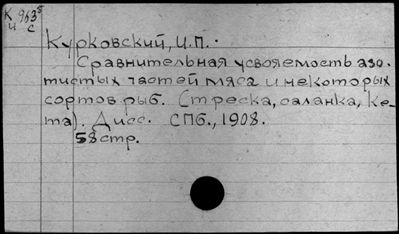 К 963⁵
и с
Курковский, И.П.
Сравнительная усвояемость азо-
тистых частей мяса и некоторых
сортов рыб. (треска, саланка, ке-
та). Дисс. СПб., 1908.
58 стр.